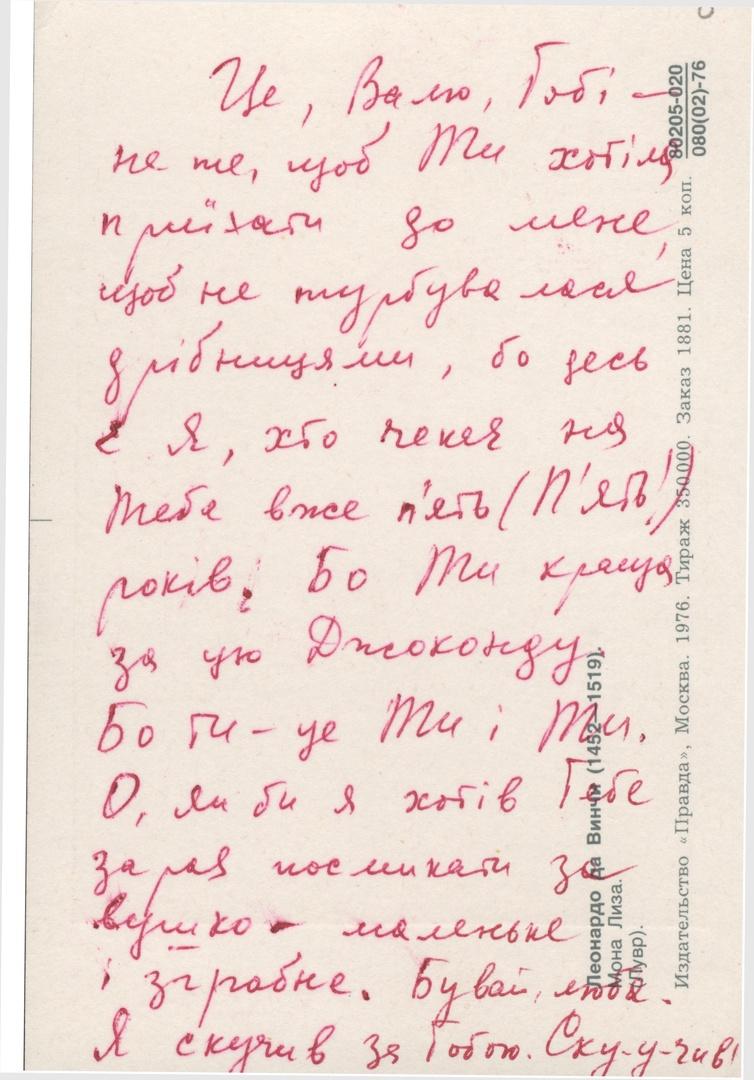 Це, Валю, Тобі —
не те, щоб Ти хотіла
приїхати до мене,
щоб не турбувалася
дрібницями, бо десь
є Я, хто чекає на
Тебе вже п'ять (П'ЯТЬ!)
років! Бо Ти краща
за цю Джоконду.
Бо ти — це Ти і Ти.
О, як би я хотів Тебе
зараз посмикати за
вушко — маленьке
і зграбне. Бувай, люба.
Я скучив за Тобою. Ску-у-чив!
80205-020
080(02)-76
Издательство «Правда», Москва. 1976. Тираж 350 000. Заказ 1881. Цена 5 коп.
Леонардо да Винчи (1452—1519).
Мона Лиза.
(Лувр).